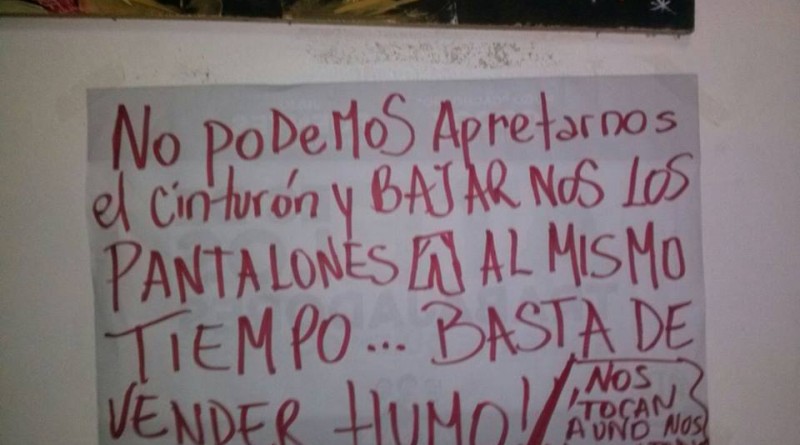 No poDeMoS Apretarnos
el cinturón y BAJAR NOS LOS
PANTALONES AL MISMO
TIEMPO... BASTA DE
VENDER HUMO!
NOS
TOCAN
A UNO NOS